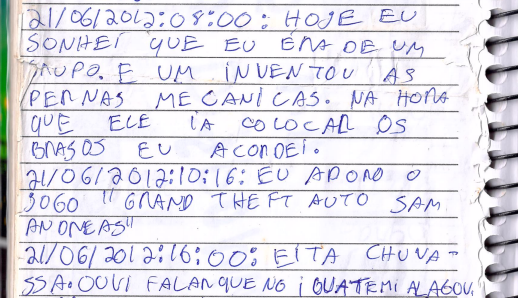 21/06/2012:08:00: HOJE EU
SONHEI QUE EU ERA DE UM
GRUPO. E UM INVENTOU AS
PERNAS MECANICAS. NA HORA
QUE ELE IA COLOCAR OS
BRASOS EU ACORDEI.
21/06/2012:10:16: EU ADORO O
JOGO "GRAND THEFT AUTO SAM
ANDREAS"
21/06/2012:16:00: EITA CHUVA-
SSA. OUVI FALAR QUE NO IGUATEMI ALAGOU.